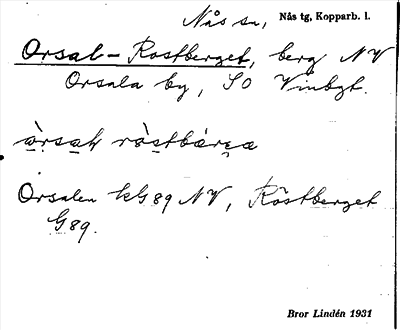 Nås sn, Nås tg, Kopparb. l.
Orsal-Rostberget, berg NV
Orsala by, SO Vinbgt.
Orsalen kG89 NV, Röstberget
G89.
Bror Lindén 1931